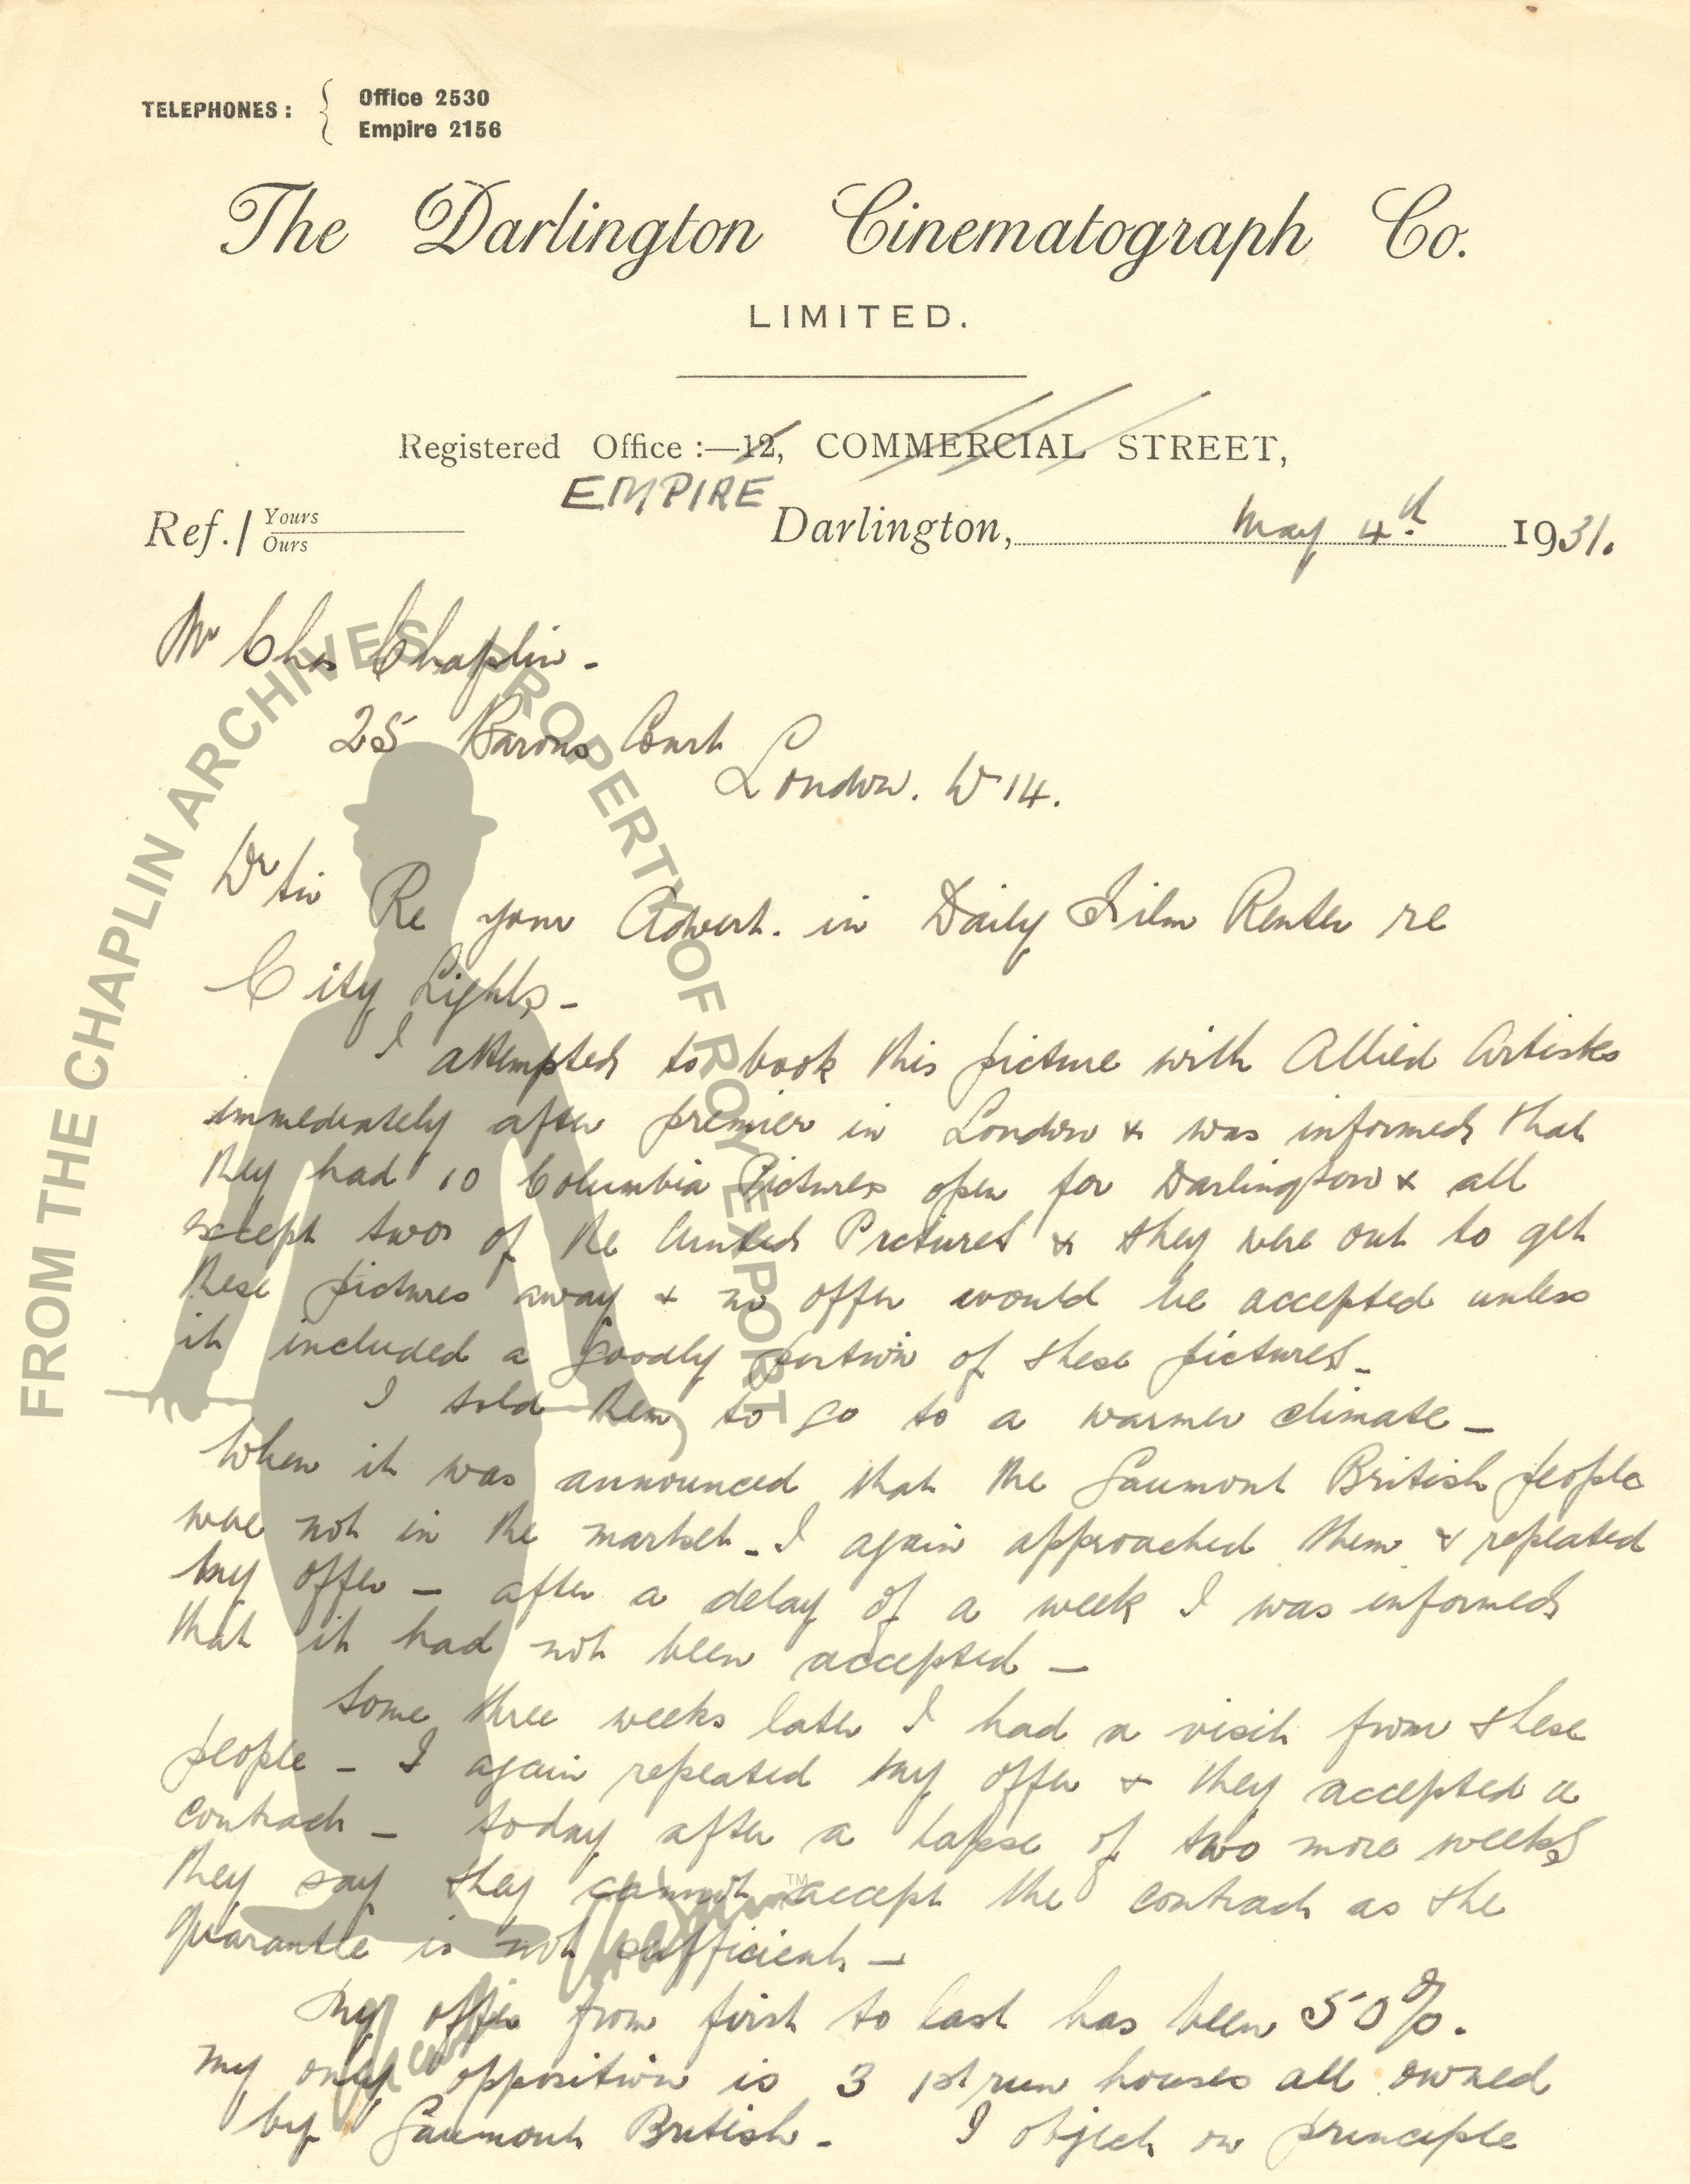 TELEPHONES: { Office 2530
Empire 2156
The Darlington Cinematograph Co.
LIMITED.
Registered Office:—12, COMMERCIAL STREET,
EMPIRE
Ref./ Yours
Ours
Darlington, May 4th 1931.
Mr Chas Chaplin -
25 Barons Court
London. W 14.
Dr Sir Re your Advert. in Daily Film Renter re
City Lights -
I attempted to book this picture with Allied Artists
immediately after premier in London & was informed that
they had 10 Columbia Pictures open for Darlington & all
except two of the United Pictures & they were out to get
these pictures away & no offer would be accepted unless
it included a goodly portion of these pictures -
I told them to go to a warmer climate -
When it was announced that the Gaumont British people
were not in the market - I again approached them & repeated
my offer - after a delay of a week I was informed
that it had not been accepted -
Some three weeks later I had a visit from these
people - I again repeated my offer & they accepted a
contract - today after a lapse of two more weeks
they say they cannot accept the contract as the
guarantee is not sufficient -
My offer from first to last has been 50%.
My only opposition is 3 1st run houses all owned
by Gaumont British - I object on principle
FROM THE CHAPLIN ARCHIVES PROPERTY OF ROY EXPORT
TM